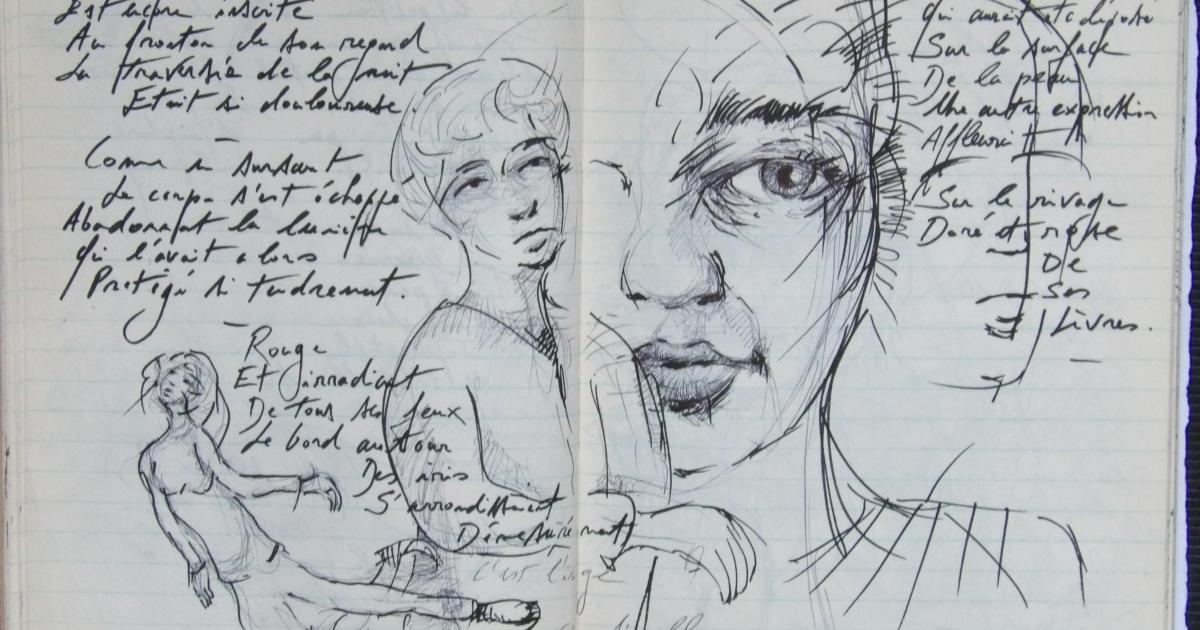 Est encore inscrite
Au fronton de son regard
La traversée de la nuit
Etait si douloureuse.
Comme un sursaut
Le corps s'est échappé
Abandonnant la lumière
Qui l'avait alors
Protégé si tendrement.
Rouge
Et irradiant
De tous ses feux
Le bord autour
Des iris
S'arrondissent
Démesurément
C'est l'ange
Qui aurait été déposé
Sur la surface
De la peau
Une autre expression
Affleurait
Sur le rivage
Doré et rose
De
Ses
Lèvres.